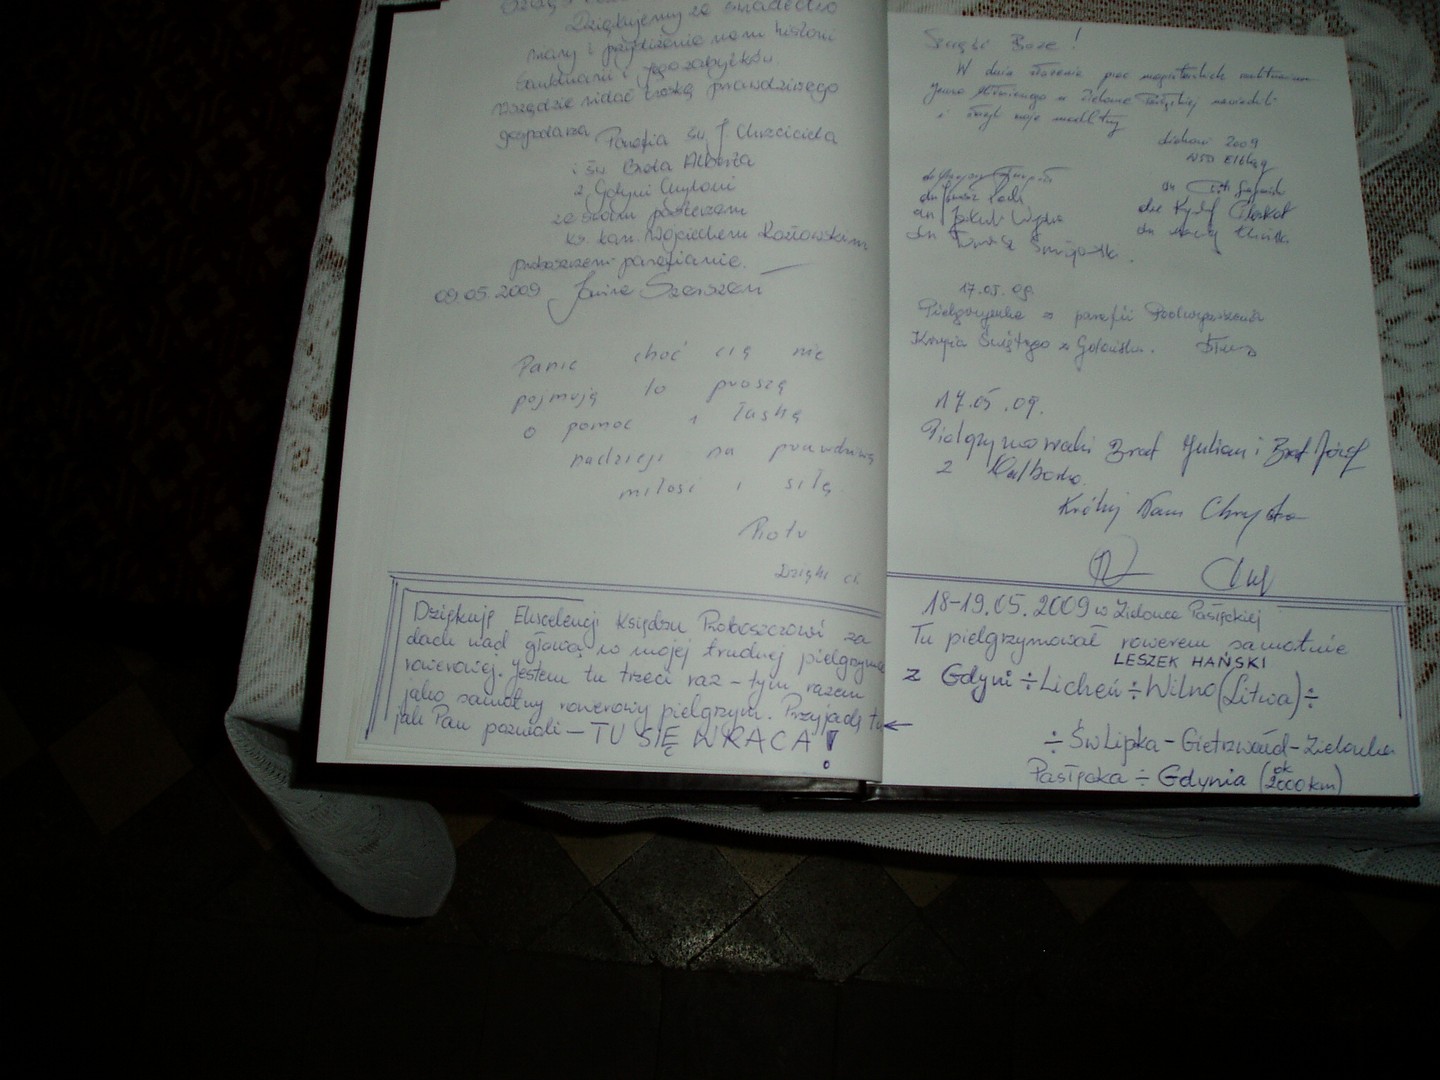 Dziękujemy za świadectwo
wiary i przybliżenie nam historii
Sanktuarium i jego zabytków
Wszędzie widać troskę prawdziwego
gospodarza Parafia św. J. Chrzciciela
i św. Brata Alberta
z Gdyni
ze swoim pasterzem
ks. kan. Wojciechem
proboszczem parafianie.
09.05.2009
Panie choć cię nie
pojmuję to proszę
o pomoc i łaskę
nadzieji na prawdziwą
miłość i siłę
Piotr
Dzięki ci
Dziękuję Ekscelencji Księdzu Proboszczowi za
dach nad głową w mojej trudnej pielgrzymce
rowerowej. Jestem tu trzeci raz – tym razem
jako samotny rowerowy pielgrzym. Przyjadę tu
jak Pan pozwoli – TU SIĘ WRACA!
Szczęść Boże!
W dniu złożenia prac magisterskich
w Zielonce Pasłęckiej
i swoje modlitwy
2009
WSD Elbląg
dn
dn Jakub
dn Tomasz
17.05.09.
Pielgrzymka z parafii Podwyższenia
Krzyża Świętego z
17.05.09.
Pielgrzymowali Brat Julian i Brat Józef
z Malborka.
Króluj Nam Chryste
18-19.05.2009 w Zielonce Pasłęckiej
Tu pielgrzymował rowerem samotnie
LESZEK HAŃSKI
z Gdyni ÷ Licheń ÷ Wilno (Litwa) ÷
÷ Św Lipka – Gietrzwałd – Zielonka
Pasłęcka ÷ Gdynia (ok 2000 km)